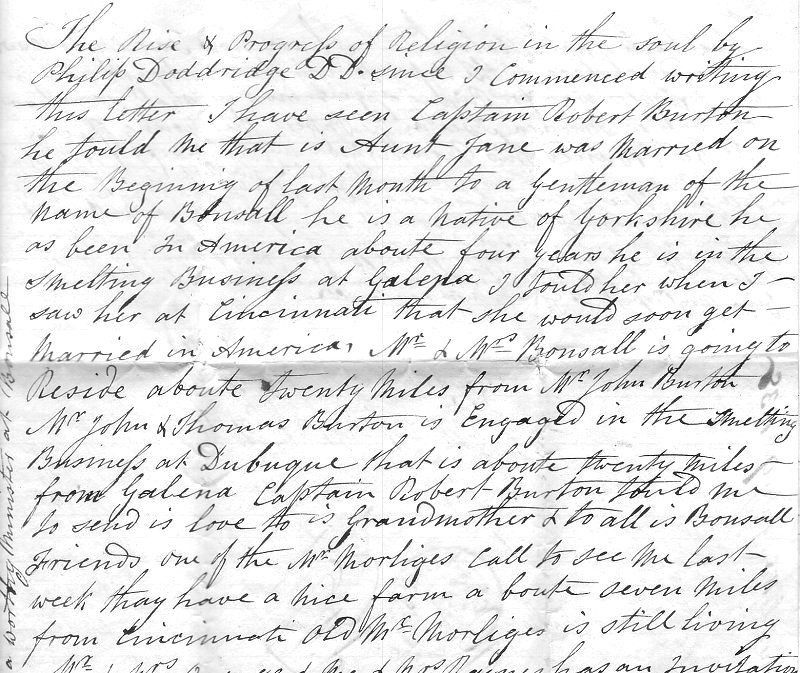 The Rise & Progress of Religion in the soul by
Philip Doddridge DD. since I commenced writing
this letter I have seen Captain Robert Burton
he tould me that is Aunt Jane was Married on
the Beginning of last Month to a Gentleman of the
name of Bonsall he is a native of Yorkshire he
as been In America aboute four years he is in the
smelting Business at Galena I tould her when I
saw her at Cincinnati that she would soon get
Married in America. Mr & Mrs Bonsall is going to
Reside aboute twenty Miles from Mr John Burton
Mr John & Thomas Burton is Engaged in the smelting
Business at Dubuque that is aboute twenty Miles
from Galena Captain Robert Burton tould me
to send is love to is Grandmother & to all is Bonsall
Friends one of the Mr Morliges call to see Me last
week thay have a nice farm a boute seven Miles
from Cincinnati Old Mr Morliges is still living
Mr & Mrs & Mrs has an Invitation
a minister at Bonsall